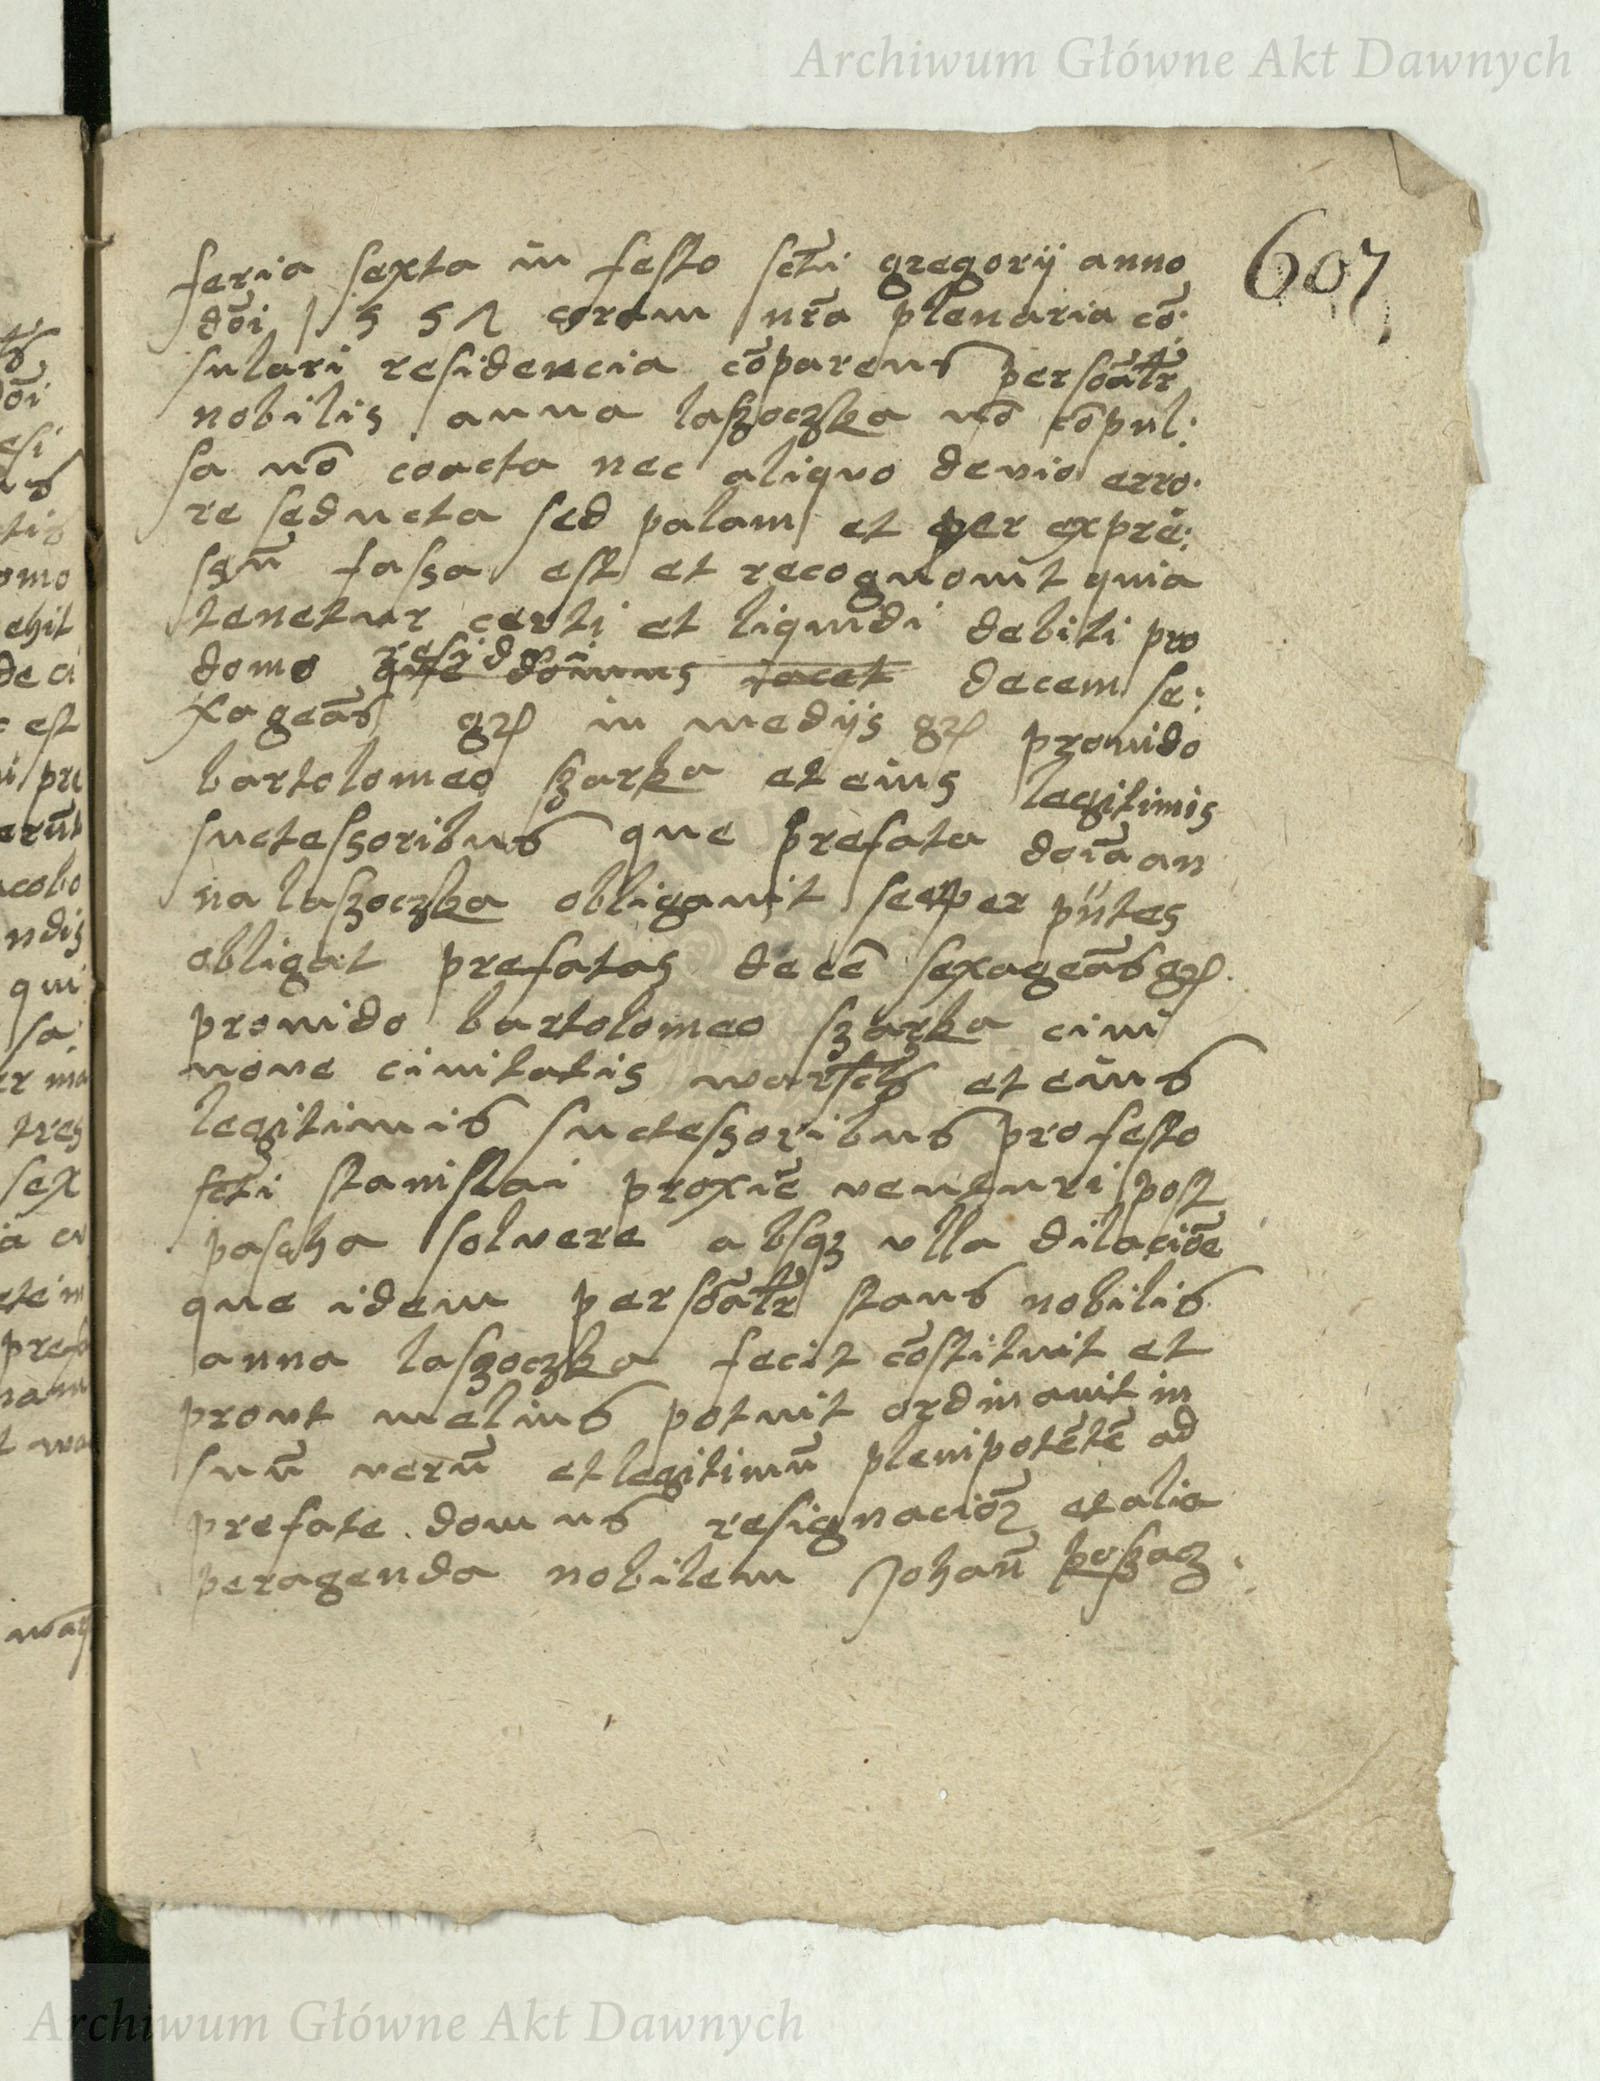 Archiwum Główne Akt Dawnych
607
feria sexta in festo scti gregorij anno
dōi 1552 coram nr̄a plenaria cō:
sulari residencia cōparens persōalr̄
nobilis anna laszoczka nō cōpul:
sa nō coacta nec aliquo devio erro:
re seducta sed palam et per expre:
ssū fassa est et recognouit quia
tenetur certi et liquidi debiti pro
domo residui que domus iacet decem se:
xageās gr in medijs gr prouido
bartolomeo szarka et eius legitimis
suctessoribus que prefata doīa an
na laszoczka obligauit se et per pn̄tes
obligat prefatas decē sexageās gr
prouido bartolomeo szarka ciui
noue ciuitatis et eius
legitimis suctessoribus pro festo
scti stanislai proxīe venturi post
pascha solvere absqz vlla dilaciōe
que idem persōalr̄ stans nobilis
anna laszoczka fecit cōstituit et
prout melius potuit ordinauit in
suū verū et legitimū plenipotētē ad
prefate domus resignaciōz et alia
peragenda nobilem Johan̄
Archiwum Główne Akt Dawnych